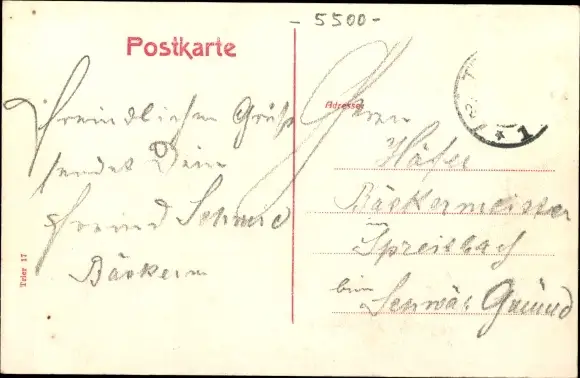 - 5500 -
Postkarte
Freindlichen Grüß
sendet Dein
Freind Schmid
Bäckerm
Adresse:
Herrn
Häfer
Bäckermeister
in
Spreitbach
beim
Schwä: Gmünd
Trier 17
1